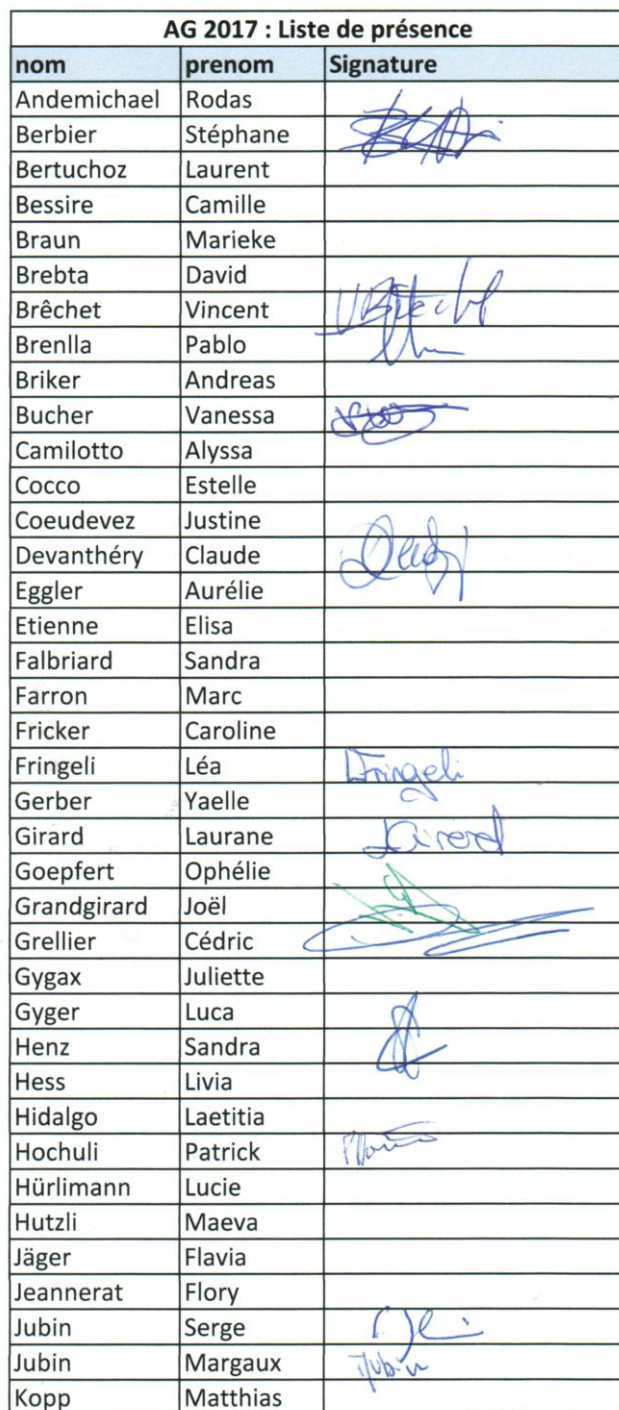 AG 2017 : Liste de présence
nom prenom Signature
Andemichael Rodas
Berbier Stéphane
Bertuchoz Laurent
Bessire Camille
Braun Marieke
Brebta David
Brêchet Vincent VBrêchet
Brenlla Pablo
Briker Andreas
Bucher Vanessa
Camilotto Alyssa
Cocco Estelle
Coeudevez Justine
Devanthéry Claude
Eggler Aurélie
Etienne Elisa
Falbriard Sandra
Farron Marc
Fricker Caroline
Fringeli Léa LFringeli
Gerber Yaelle
Girard Laurane LGirard
Goepfert Ophélie
Grandgirard Joël
Grellier Cédric
Gygax Juliette
Gyger Luca
Henz Sandra
Hess Livia
Hidalgo Laetitia
Hochuli Patrick
Hürlimann Lucie
Hutzli Maeva
Jäger Flavia
Jeannerat Flory
Jubin Serge
Jubin Margaux MJubin
Kopp Matthias